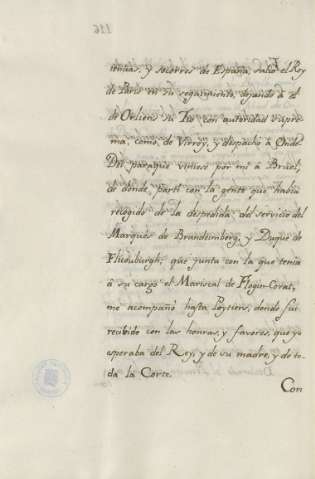 116
tencias, y socorros de España, salió el Rey
de Paris en su seguimiento, dejando a el
de Orliens su Tio con autoridad supre-
ma, como de Virrey, y despachó a Onde-
Dei paraque viniese por mi a Bruel,
de donde partí con la gente que havia
recogido de la despedida del servicio del
Marqués de Brandemberg, y Duque de
que junta con la que tenia
a su cargo el Mariscal de
me acompañó hasta Poytiers, donde fui
recibido con las honras, y favores, que yo
esperaba del Rey, y de su madre, y de to-
da la Corte.
Con